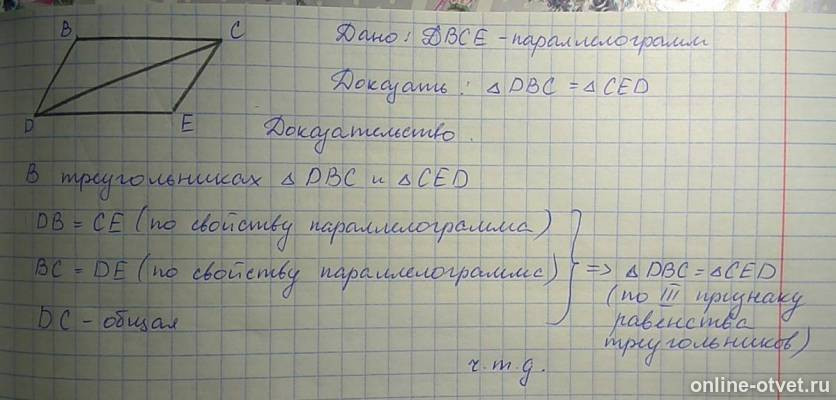 B C
D E
Дано: DBCE - параллелограмм
Доказать: △ DBC = △ CED
Доказательство.
В треугольниках △ DBC и △ CED
DB = CE (по свойству параллелограмма)
BC = DE (по свойству параллелограммс)
DC - общая
=> △ DBC = △ CED
(по III признаку
равенства
треугольников)
ч.т.д.
online-otvet.ru